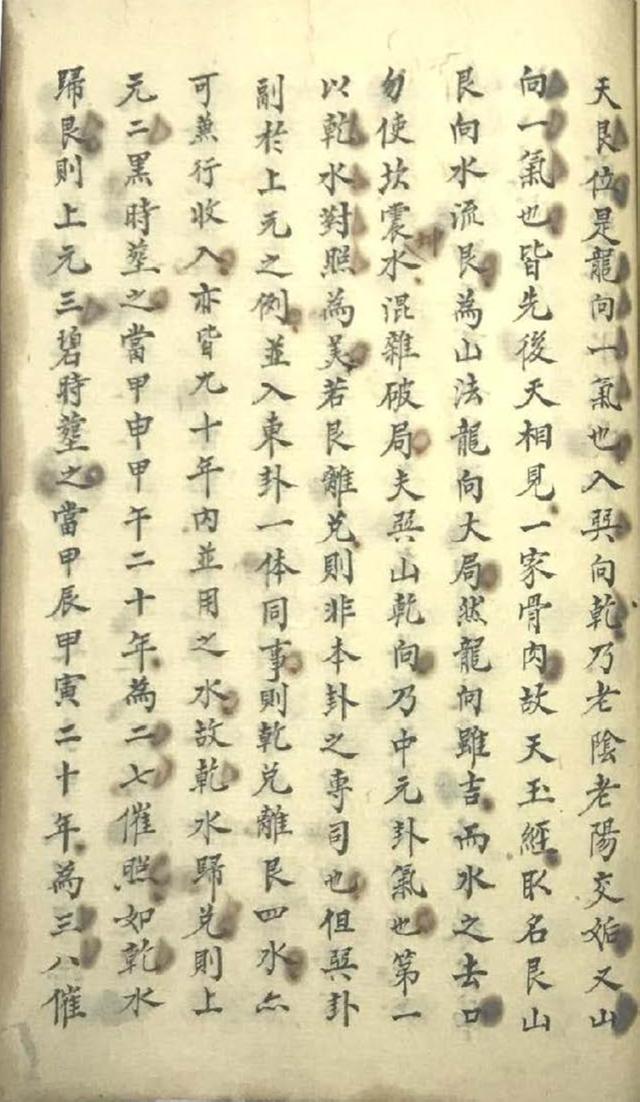 天艮位是龍向一氣也入巽向乾乃老陰老陽交姤又山
向一氣也皆先後天相見一家骨肉故天玉經取名艮山
艮向水流艮為山法龍向大局然龍向雖吉而水之去口
勿使坎震水混雜破局夫巽山乾向乃中元卦氣也第一
以乾水對照為美若艮離兌則非本卦之專司也但巽卦
副於上元之例並入東卦一体同事則乾兌離艮四水亦
可兼行收入亦皆九十年內並用之水故乾水歸兌則上
元二黑時塟之當甲申甲午二十年為二七催照如乾水
歸艮則上元三碧時塟之當甲辰甲寅二十年為三八催